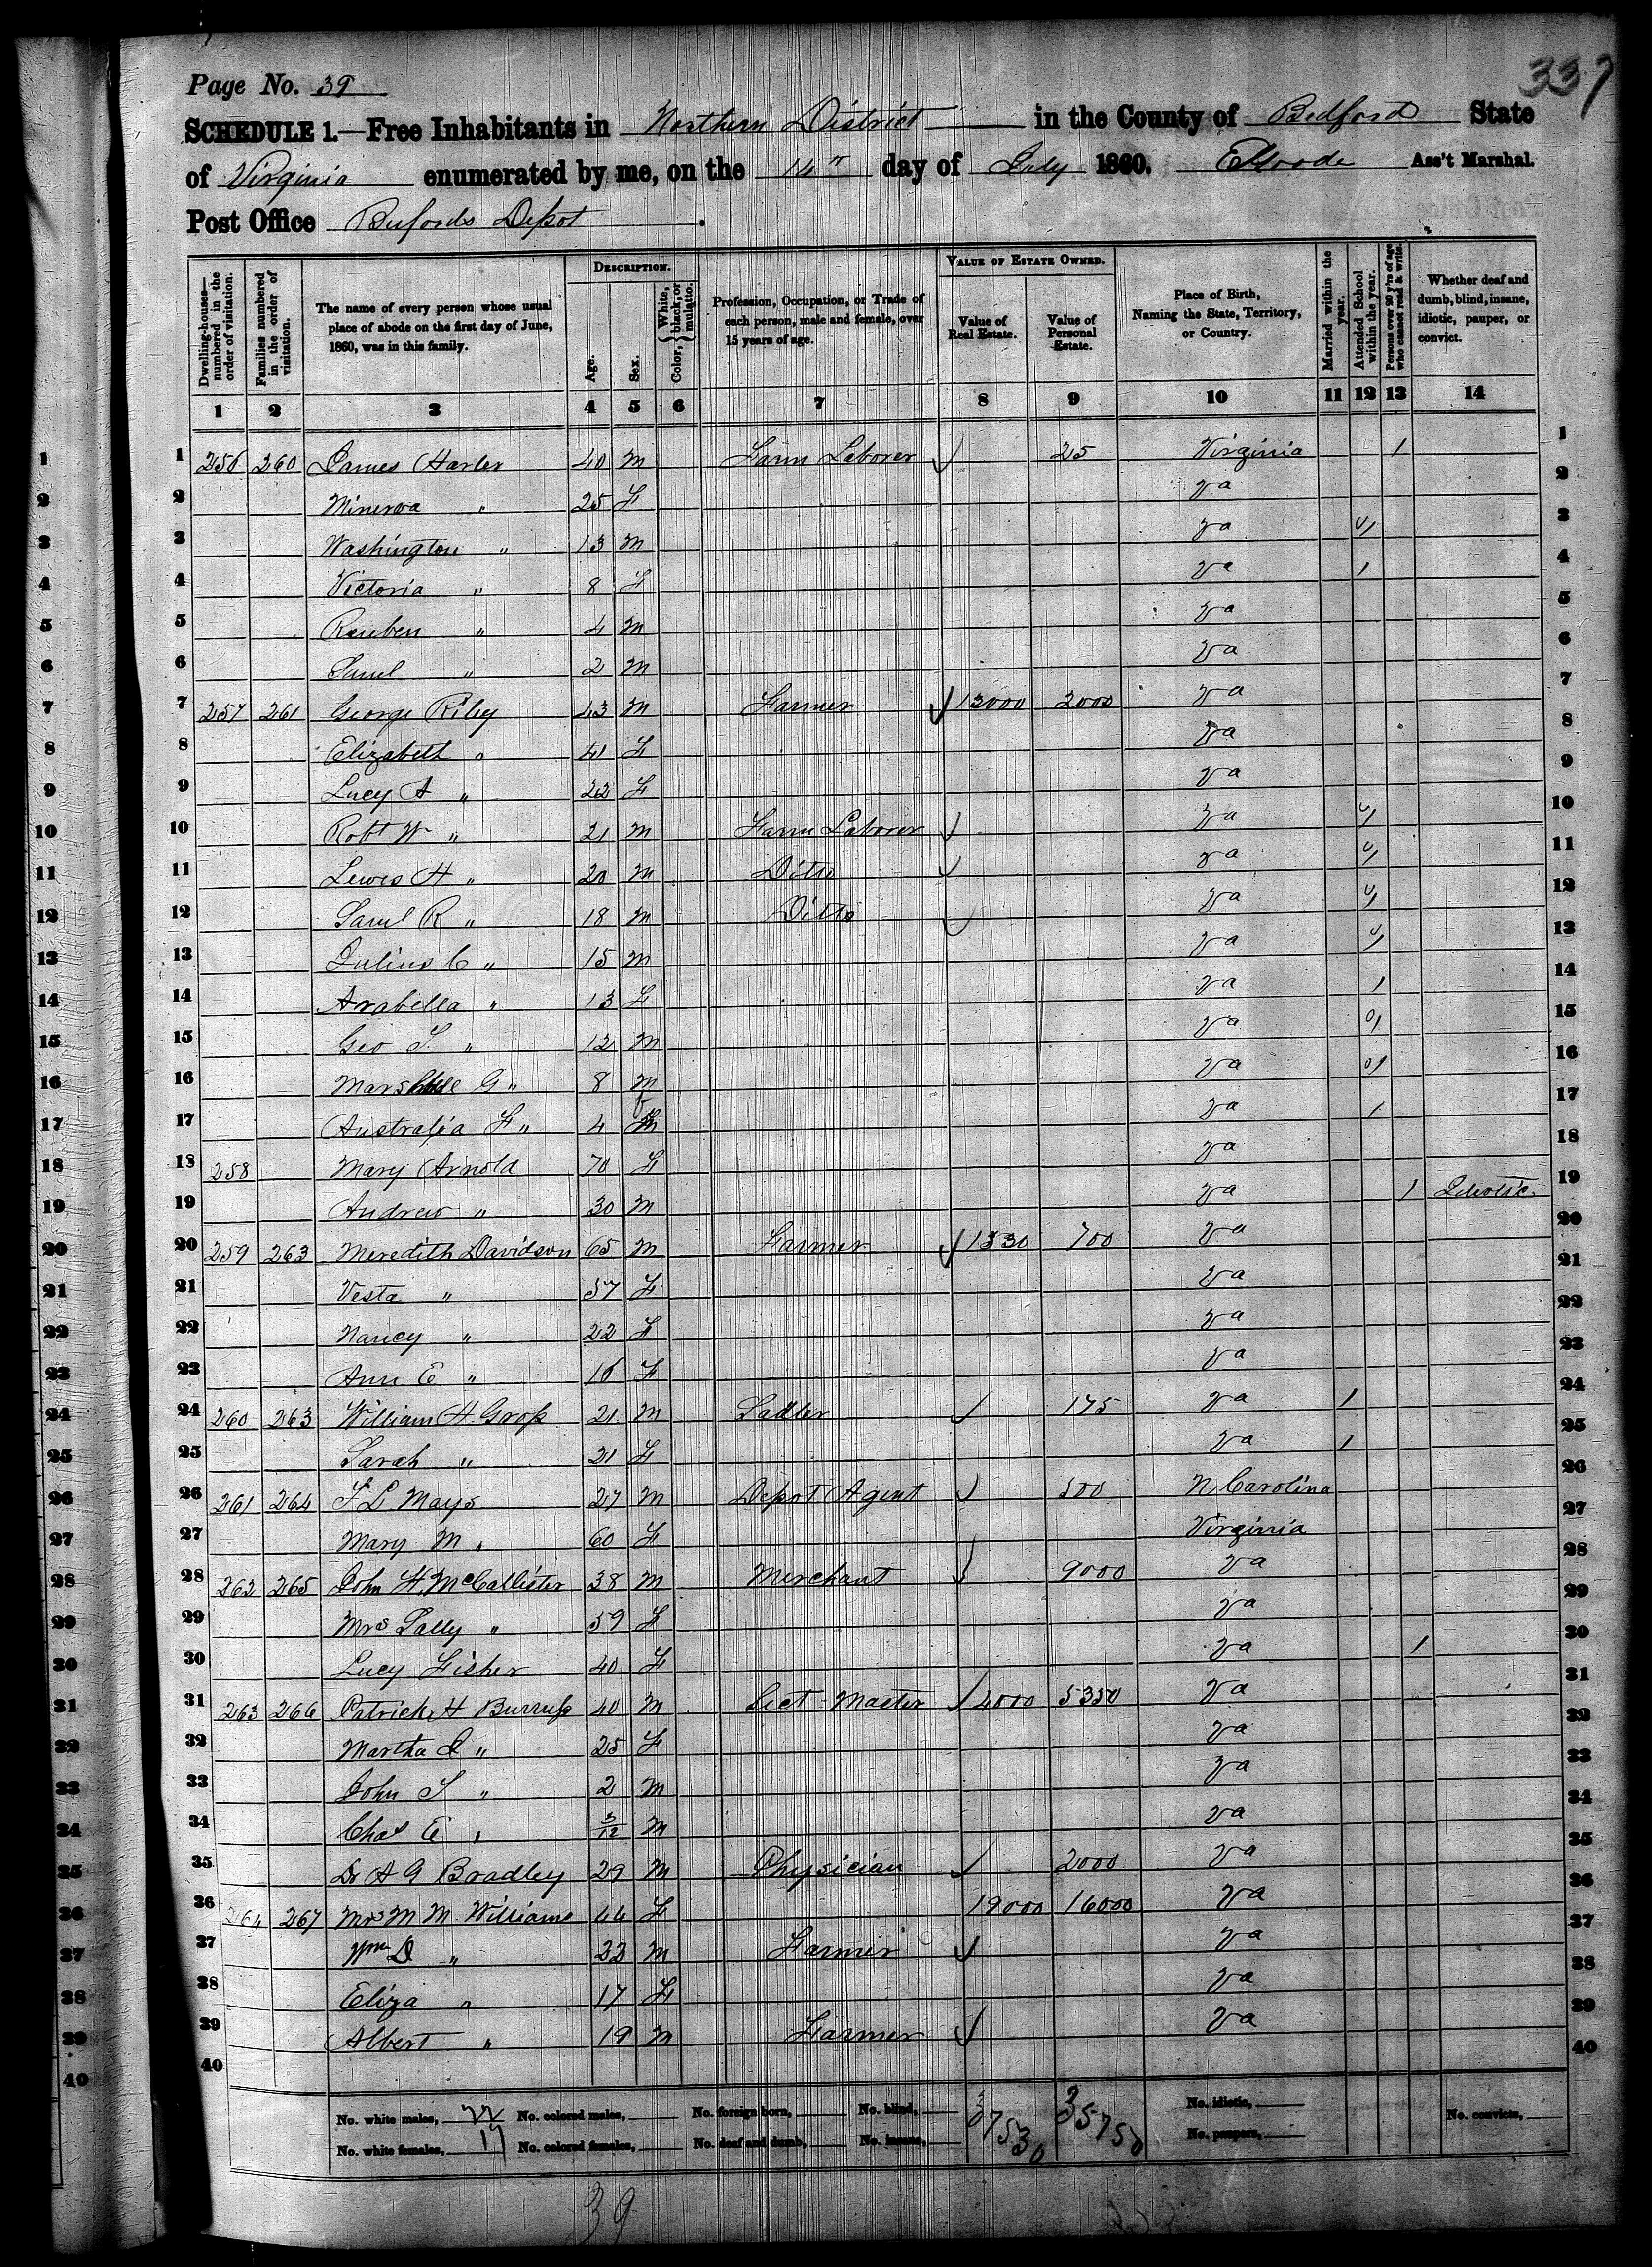 337
Page No. 39
SCHEDULE 1.—Free Inhabitants in Northern District in the County of Bedford State
of Virginia enumerated by me, on the 14th day of July 1860. Ass't Marshal.
Post Office Bufords Depot.
Dwelling-houses—numbered in the order of visitation. Families numbered in the order of visitation. The name of every person whose usual place of abode on the first day of June, 1860, was in this family. DESCRIPTION. Age. Sex. Color, {White, black, or mulatto. Profession, Occupation, or Trade of each person, male and female, over 15 years of age. VALUE OF ESTATE OWNED. Value of Real Estate. Value of Personal Estate. Place of Birth, Naming the State, Territory, or Country. Married within the year. Attended School within the year. Persons over 20 y'rs of age who cannot read & write. Whether deaf and dumb, blind, insane, idiotic, pauper, or convict.
1 2 3 4 5 6 7 8 9 10 11 12 13 14
1 256 260 James Harler 40 M Farm Laborer ✓ 25 Virginia 1 1
2 Minerva " 25 F Va 2
3 Washington " 13 M Va 1 3
4 Victoria " 8 F Va 1 4
5 Reuben " 4 M Va 5
6 Saml " 2 M Va 6
7 257 261 George Riley 43 M Farmer ✓ 13000 2000 Va 7
8 Elizabeth " 41 F Va 8
9 Lucy A " 22 F Va 9
10 Robt W " 21 M Farm Laborer ✓ Va 1 10
11 Lewis H " 20 M Ditto ✓ Va 1 11
12 Saml R " 18 M Ditto ✓ Va 1 12
13 Julius C " 15 M Va 1 13
14 Arabella " 13 F Va 1 14
15 Geo S " 12 M Va 1 15
16 Marshall G " 8 M Va 1 16
17 Australia F " 4 F Va 1 17
18 258 Mary Arnold 70 F Va 18
19 Andrew " 30 M Va 1 Idiotic 19
20 259 263 Meredith Davidson 65 M Farmer ✓ 1530 700 Va 20
21 Vesta " 57 F Va 21
22 Nancy " 22 F Va 22
23 Ann E " 16 F Va 23
24 260 263 William H Gross 21 M Sadler ✓ 175 Va 1 24
25 Sarah " 21 F Va 1 25
26 261 264 F L Mays 27 M Depot Agent ✓ 500 N Carolina 26
27 Mary M " 60 F Virginia 27
28 262 265 John H. McCallister 38 M Merchant ✓ 9000 Va 28
29 Mrs Sally " 59 F Va 29
30 Lucy Fisher 40 F Va 1 30
31 263 266 Patrick H Burruss 40 M Sect Master ✓ 4000 5350 Va 31
32 Martha J " 25 F Va 32
33 John S " 2 M Va 33
34 Chas E " 3/12 M Va 34
35 Dr A G Bradley 29 M Physician ✓ 2000 Va 35
36 264 267 Mrs M M Williams 44 F 19000 16000 Va 36
37 Wm D " 22 M Farmer ✓ Va 37
38 Eliza " 17 F Va 38
39 Albert " 19 M Farmer ✓ Va 39
40 40
No. white males, 22 No. colored males, No. foreign born, No. blind, 37530 35750 No. idiotic, No. convicts,
No. white females, 17 No. colored females, No. deaf and dumb, No. insane, No. paupers,
39